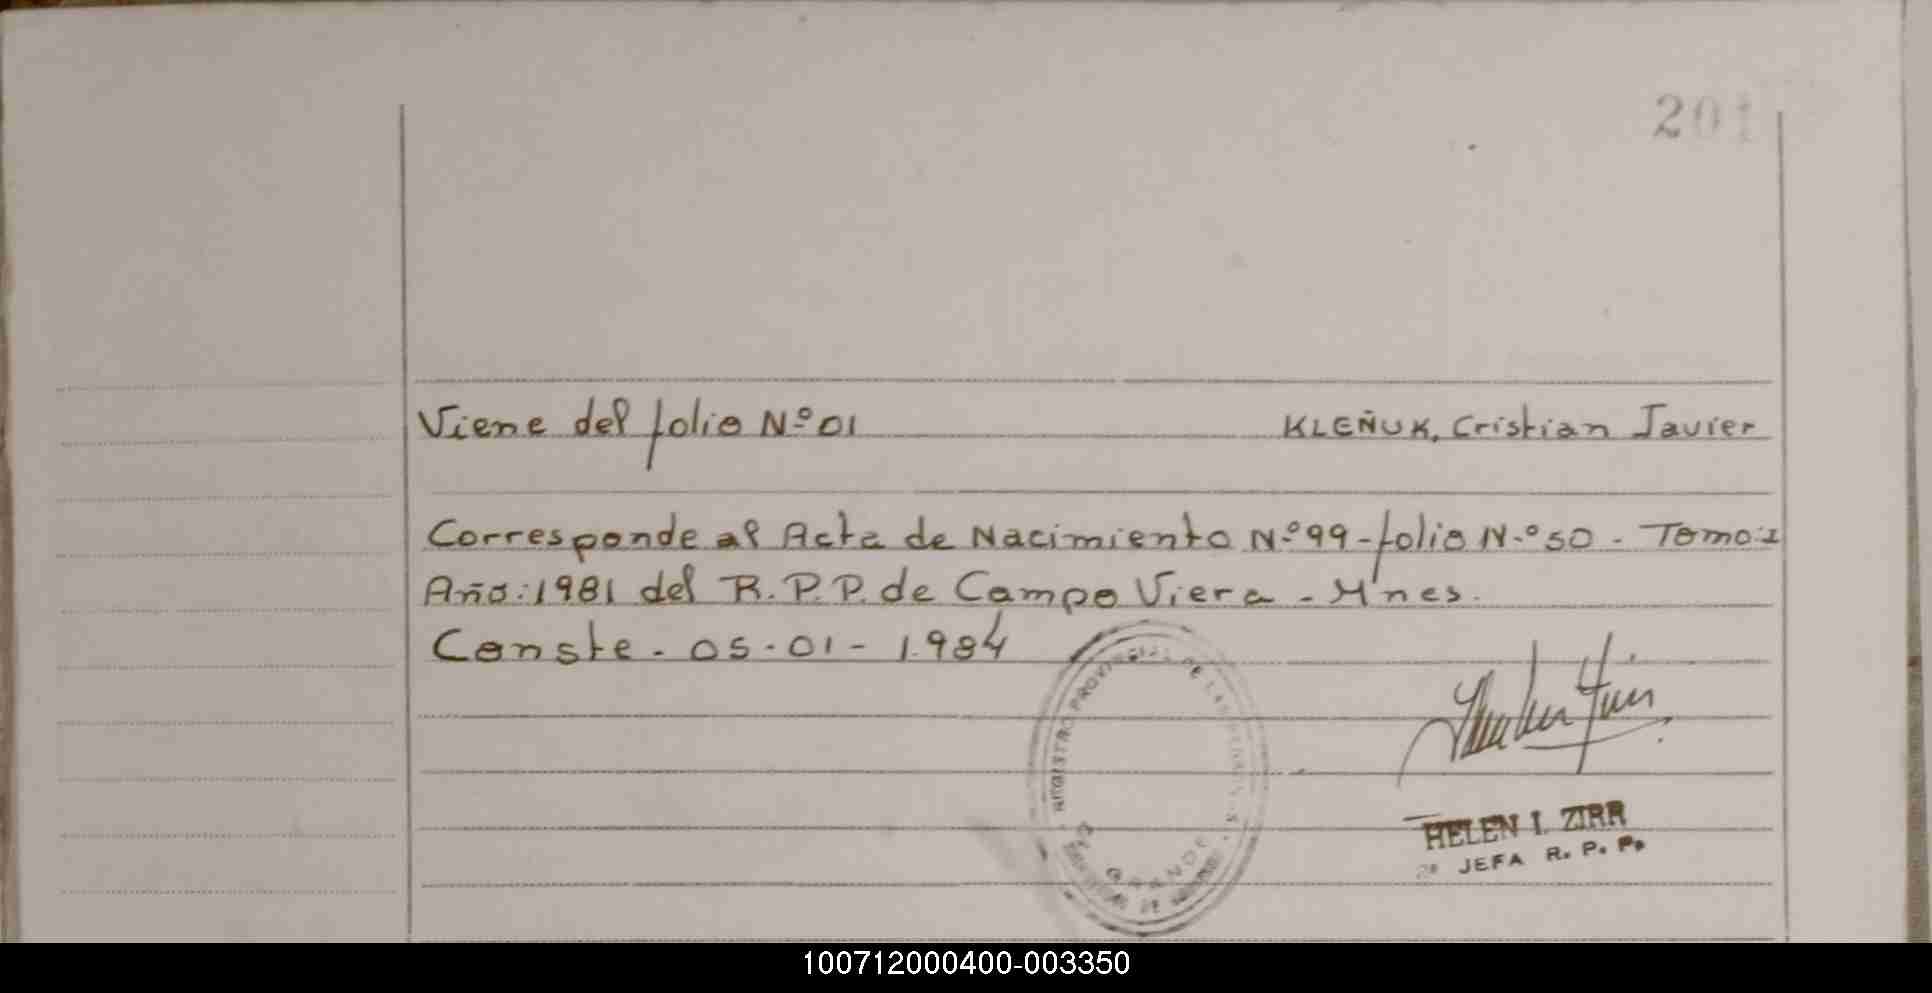 201
Viene del folio Nº 01 KLEÑUK, Cristian Javier
Corresponde al Acta de Nacimiento Nº 99 - folio N.º 50 - Tomo: I
Año: 1981 del R.P.P. de Campo Viera - Mnes.
Conste - 05-01-1.984
REGISTRO PROVINCIAL DE LAS PERSONAS
GRANDE
HELEN I. ZIRR
JEFA R. P. P.
100712000400-003350